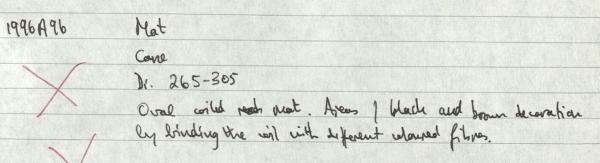 1996A96 Mat
Cane
Di. 265-305
Oval coiled mat. Areas of black and brown decoration
by binding the coil with different coloured fibres.